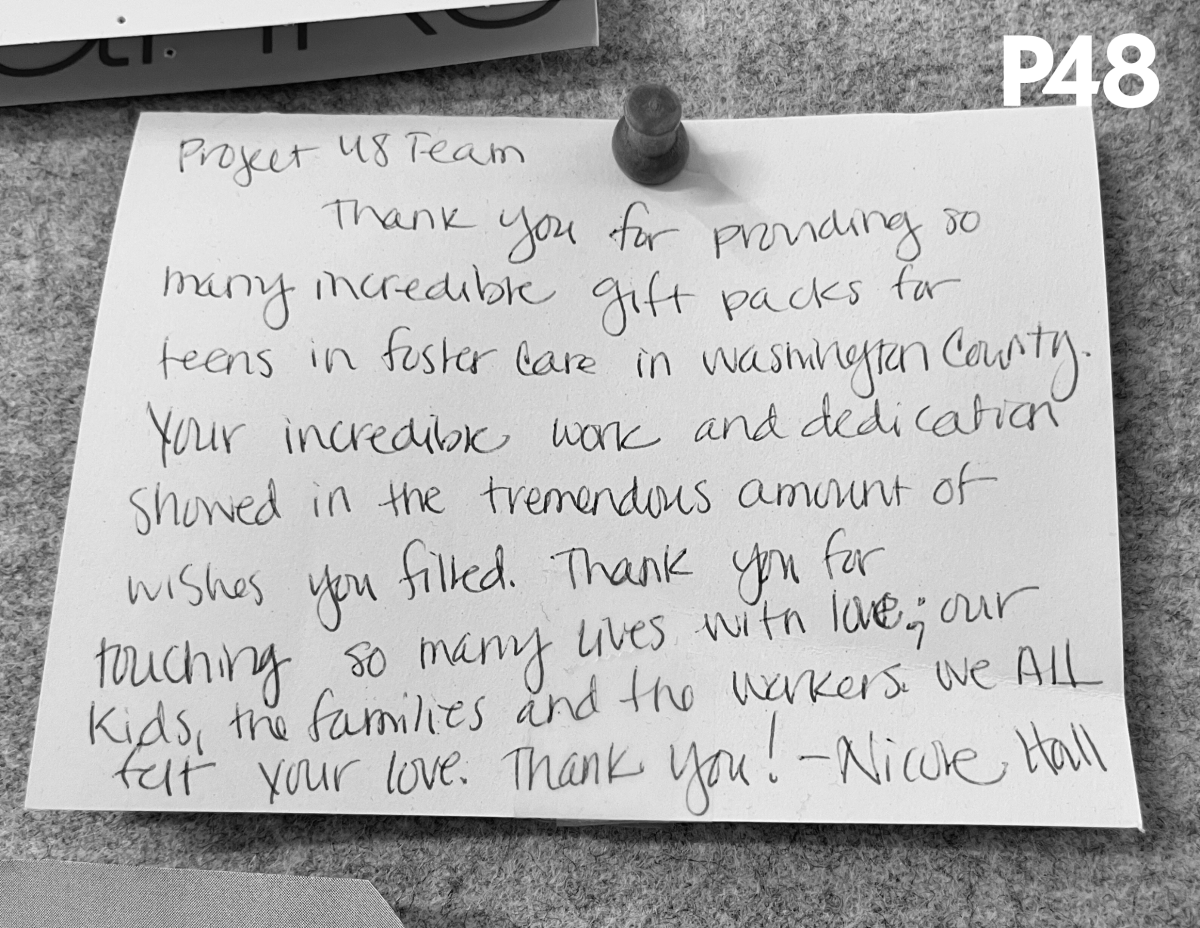 P48
Project 48 Team
Thank you for providing so
many incredible gift packs for
teens in foster care in Washington County.
Your incredible work and dedication
showed in the tremendous amount of
wishes you filled. Thank you for
touching so many lives with love; our
kids, the families and the workers. We ALL
felt your love. Thank you! - Nicole Hall